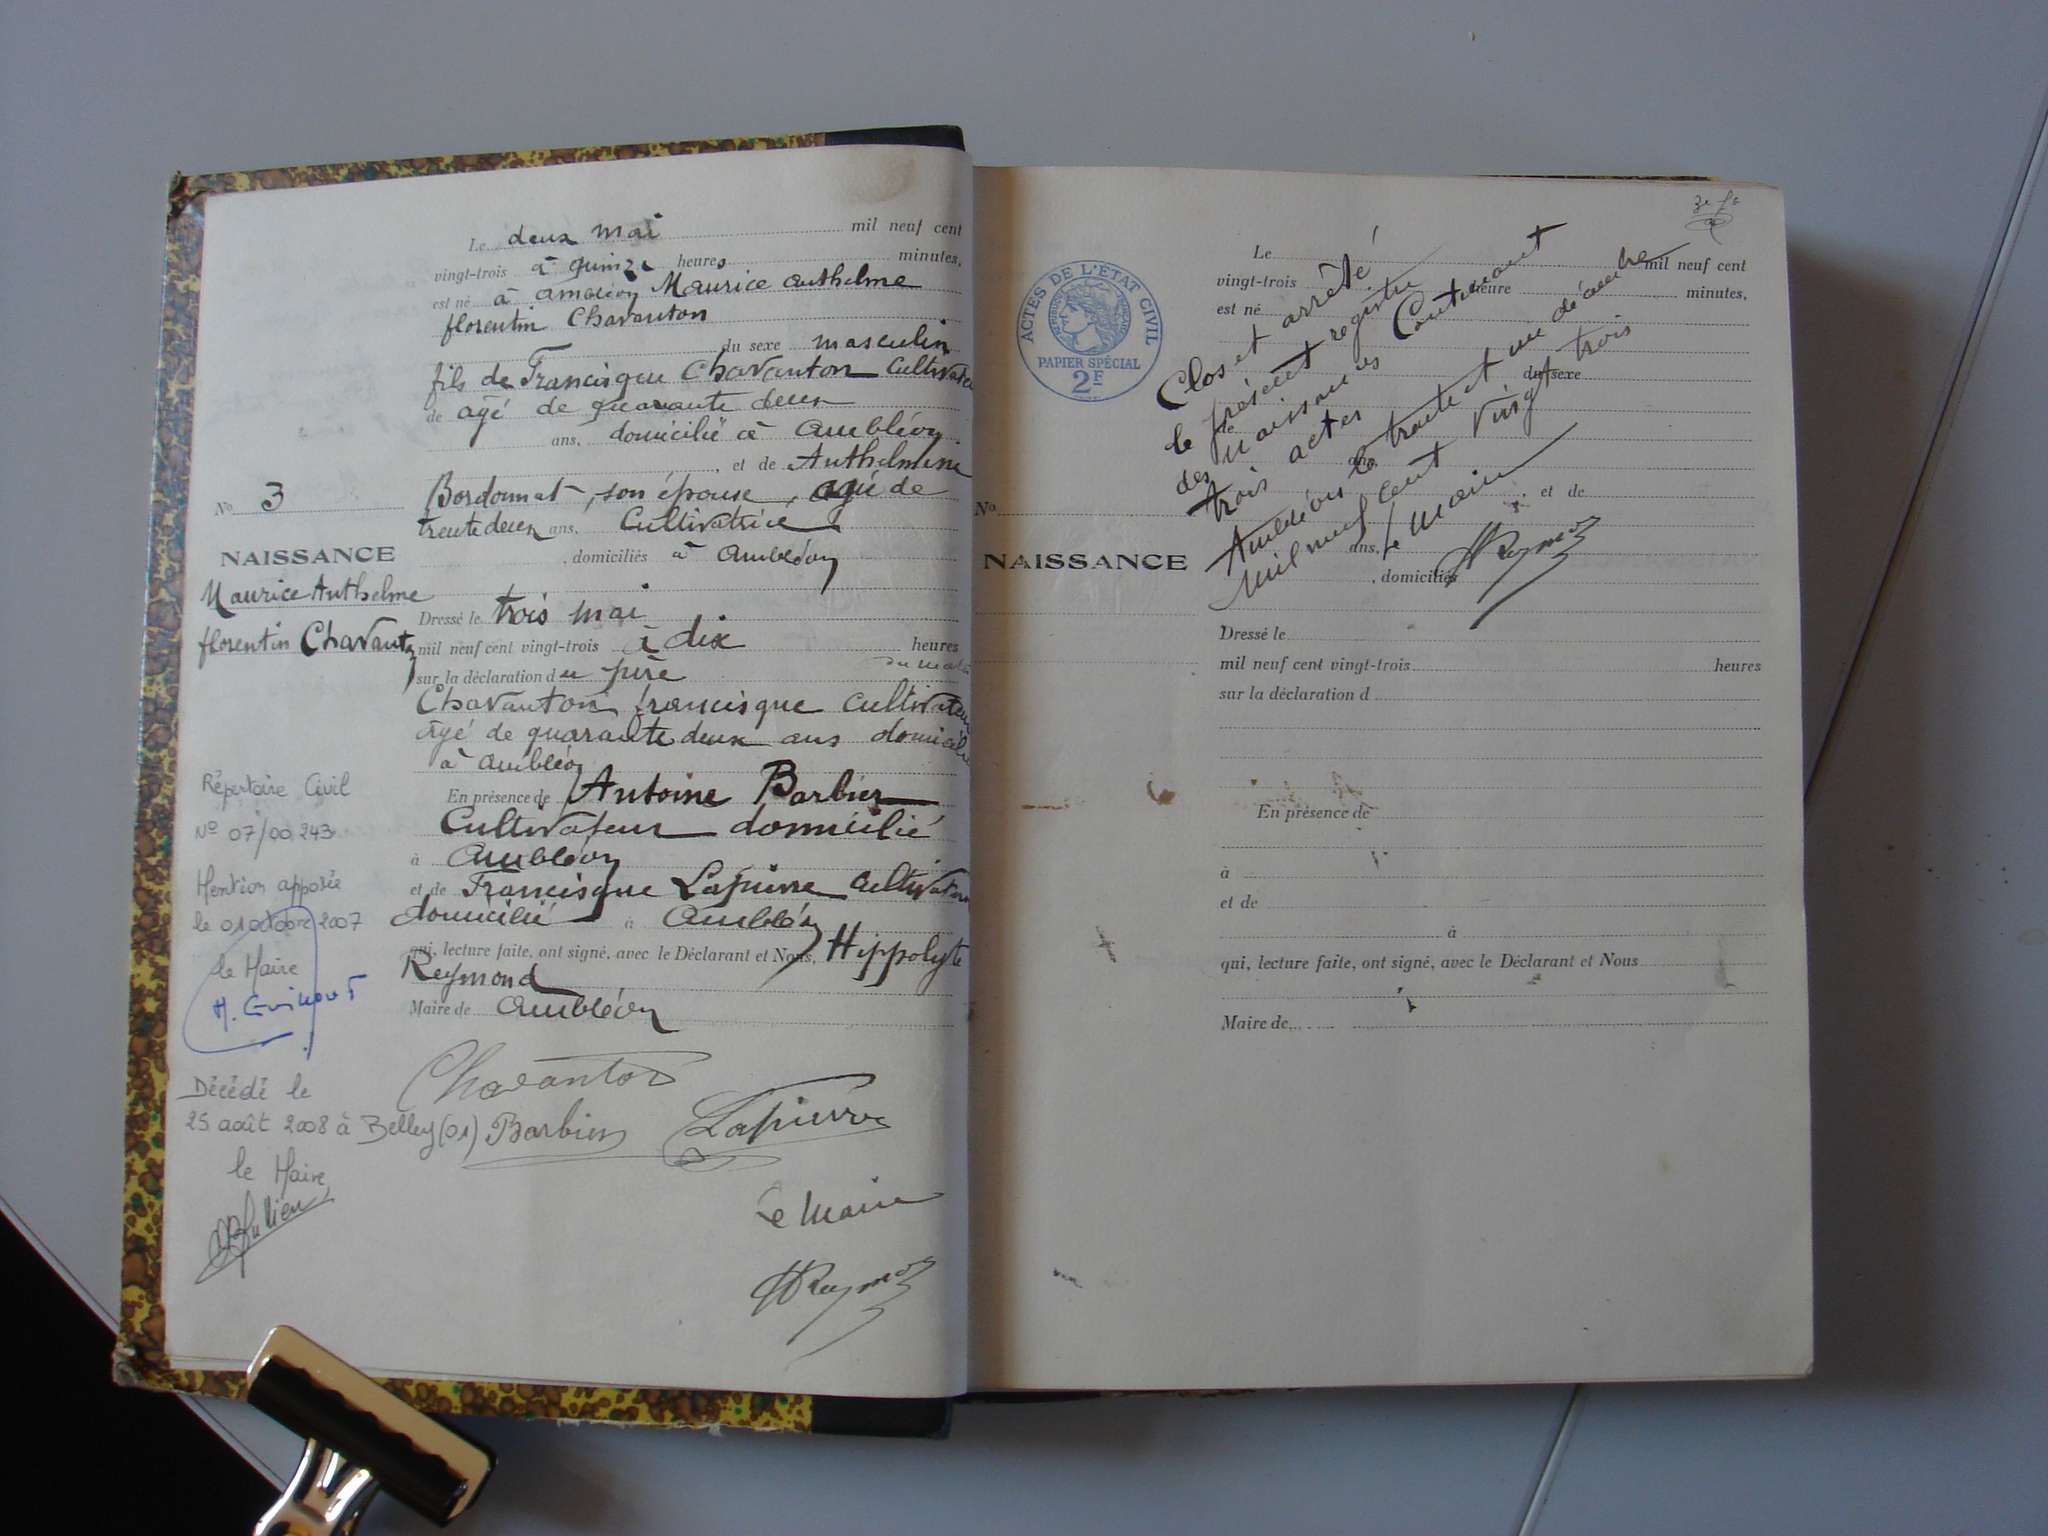 Le deux mai mil neuf cent
vingt-trois à quinze heures minutes,
est né à Ambléon Maurice Anthelme
florentin Chavanton
du sexe masculin
fils de Francisque Chavanton Cultivateur
de agé de quarante deux
ans, domicilié à Ambléon
, et de Anthelmine
Bordonnat, son épouse, agée de
trente deux ans, Cultivatrice
, domiciliés à Ambléon
No 3
NAISSANCE
Maurice Anthelme
florentin Chavanton
Dressé le trois mai
mil neuf cent vingt-trois à dix heures
du matin
sur la déclaration du père
Chavanton francisque cultivateur
âgé de quarante deux ans domicilié
à Ambléon
En présence de Antoine Barbier
Cultivateur domicilié
à Ambléon
et de Francisque Lapierre Cultivateur
domicilié à Ambléon
qui, lecture faite, ont signé, avec le Déclarant et Nous, Hippolyte
Reymond
Maire de Ambléon
Chavanton
Barbier Lapierre
Le Maire
HReymond
Répertoire Civil
No 07/00 243
Mention apposée
le 01 octobre 2007
le Maire
Décédé le
25 août 2008 à Belley (01)
le Maire
ACTES DE L'ÉTAT CIVIL
PAPIER SPÉCIAL
2F
Le mil neuf cent
vingt-trois heure minutes,
est né
du sexe
de
ans,
, et de
No
ans,
NAISSANCE
, domiciliés
Clos et arrêté
le présent registre
des naissances Contenant
trois actes
Ambléon le trente et un décembre
mil neuf cent vingt trois
le Maire
HReymond
Dressé le
mil neuf cent vingt-trois heures
sur la déclaration d
En présence de
à
et de
à
qui, lecture faite, ont signé, avec le Déclarant et Nous
Maire de